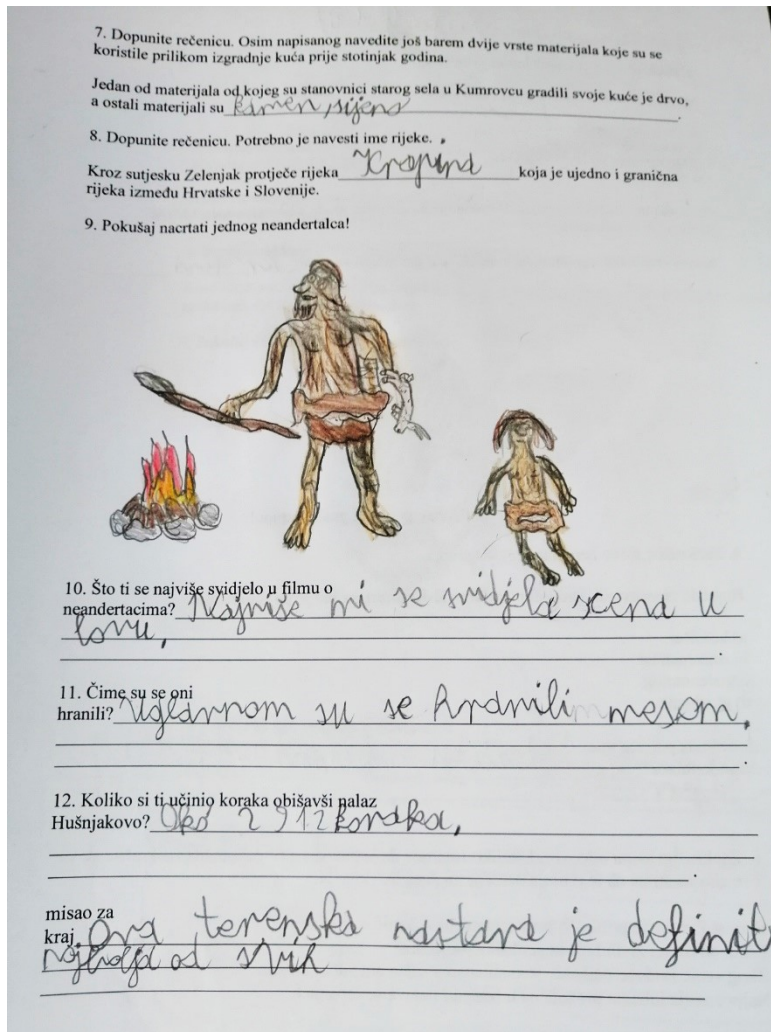 7. Dopunite rečenicu. Osim napisanog navedite još barem dvije vrste materijala koje su se
koristile prilikom izgradnje kuća prije stotinjak godina.
Jedan od materijala od kojeg su stanovnici starog sela u Kumrovcu gradili svoje kuće je drvo,
a ostali materijali su kamen, sijeno.
8. Dopunite rečenicu. Potrebno je navesti ime rijeke.
Kroz sutjesku Zelenjak protječe rijeka Krapina koja je ujedno i granična
rijeka između Hrvatske i Slovenije.
9. Pokušaj nacrtati jednog neandertalca!
10. Što ti se najviše svidjelo u filmu o
neandertacima? Najviše mi se svidjela scena u
lovu,
11. Čime su se oni
hranili? Uglavnom su se hranili mesom.
12. Koliko si ti učinio koraka obišavši nalaz
Hušnjakovo? Oko 2912 koraka,
misao za
kraj Ova terenska nastava je definit
najbolja od svih